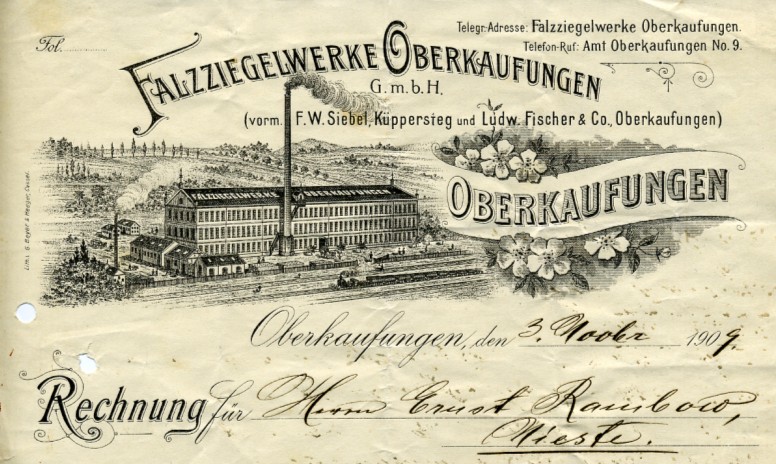 Fol.
Telegr.-Adresse: Falzziegelwerke Oberkaufungen.
Telefon-Ruf: Amt Oberkaufungen No. 9.
FALZZIEGELWERKE OBERKAUFUNGEN
G.m.b.H.
(vorm. F. W. Siebel, Küppersteg und Ludw. Fischer & Co., Oberkaufungen)
FALZZIEGELWERKE OBERKAUFUNGEN
OBERKAUFUNGEN
Oberkaufungen, den 3. Novbr 1909.
Rechnung für Herrn Ernst Rambow,
Nieste.